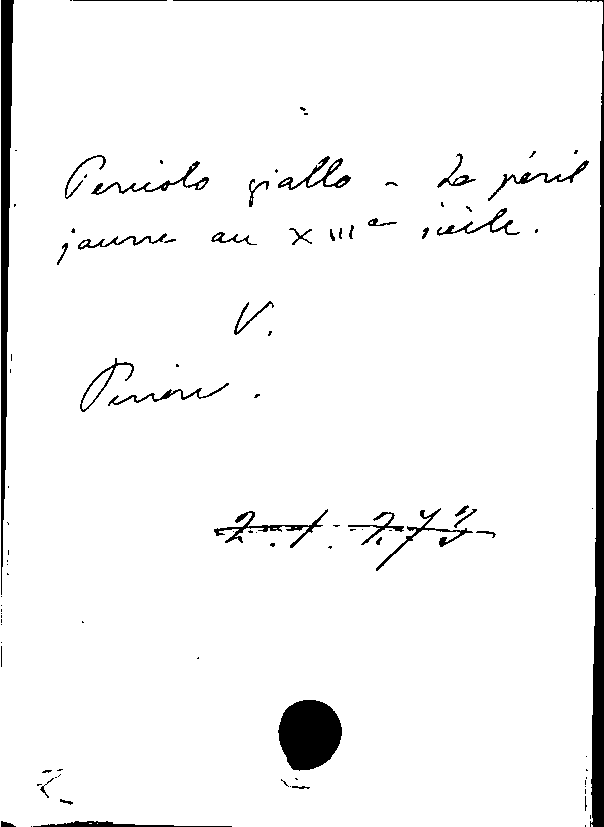 Pericolo giallo - Le péril
jaune au XIIIe siècle.
V.
2.1.273